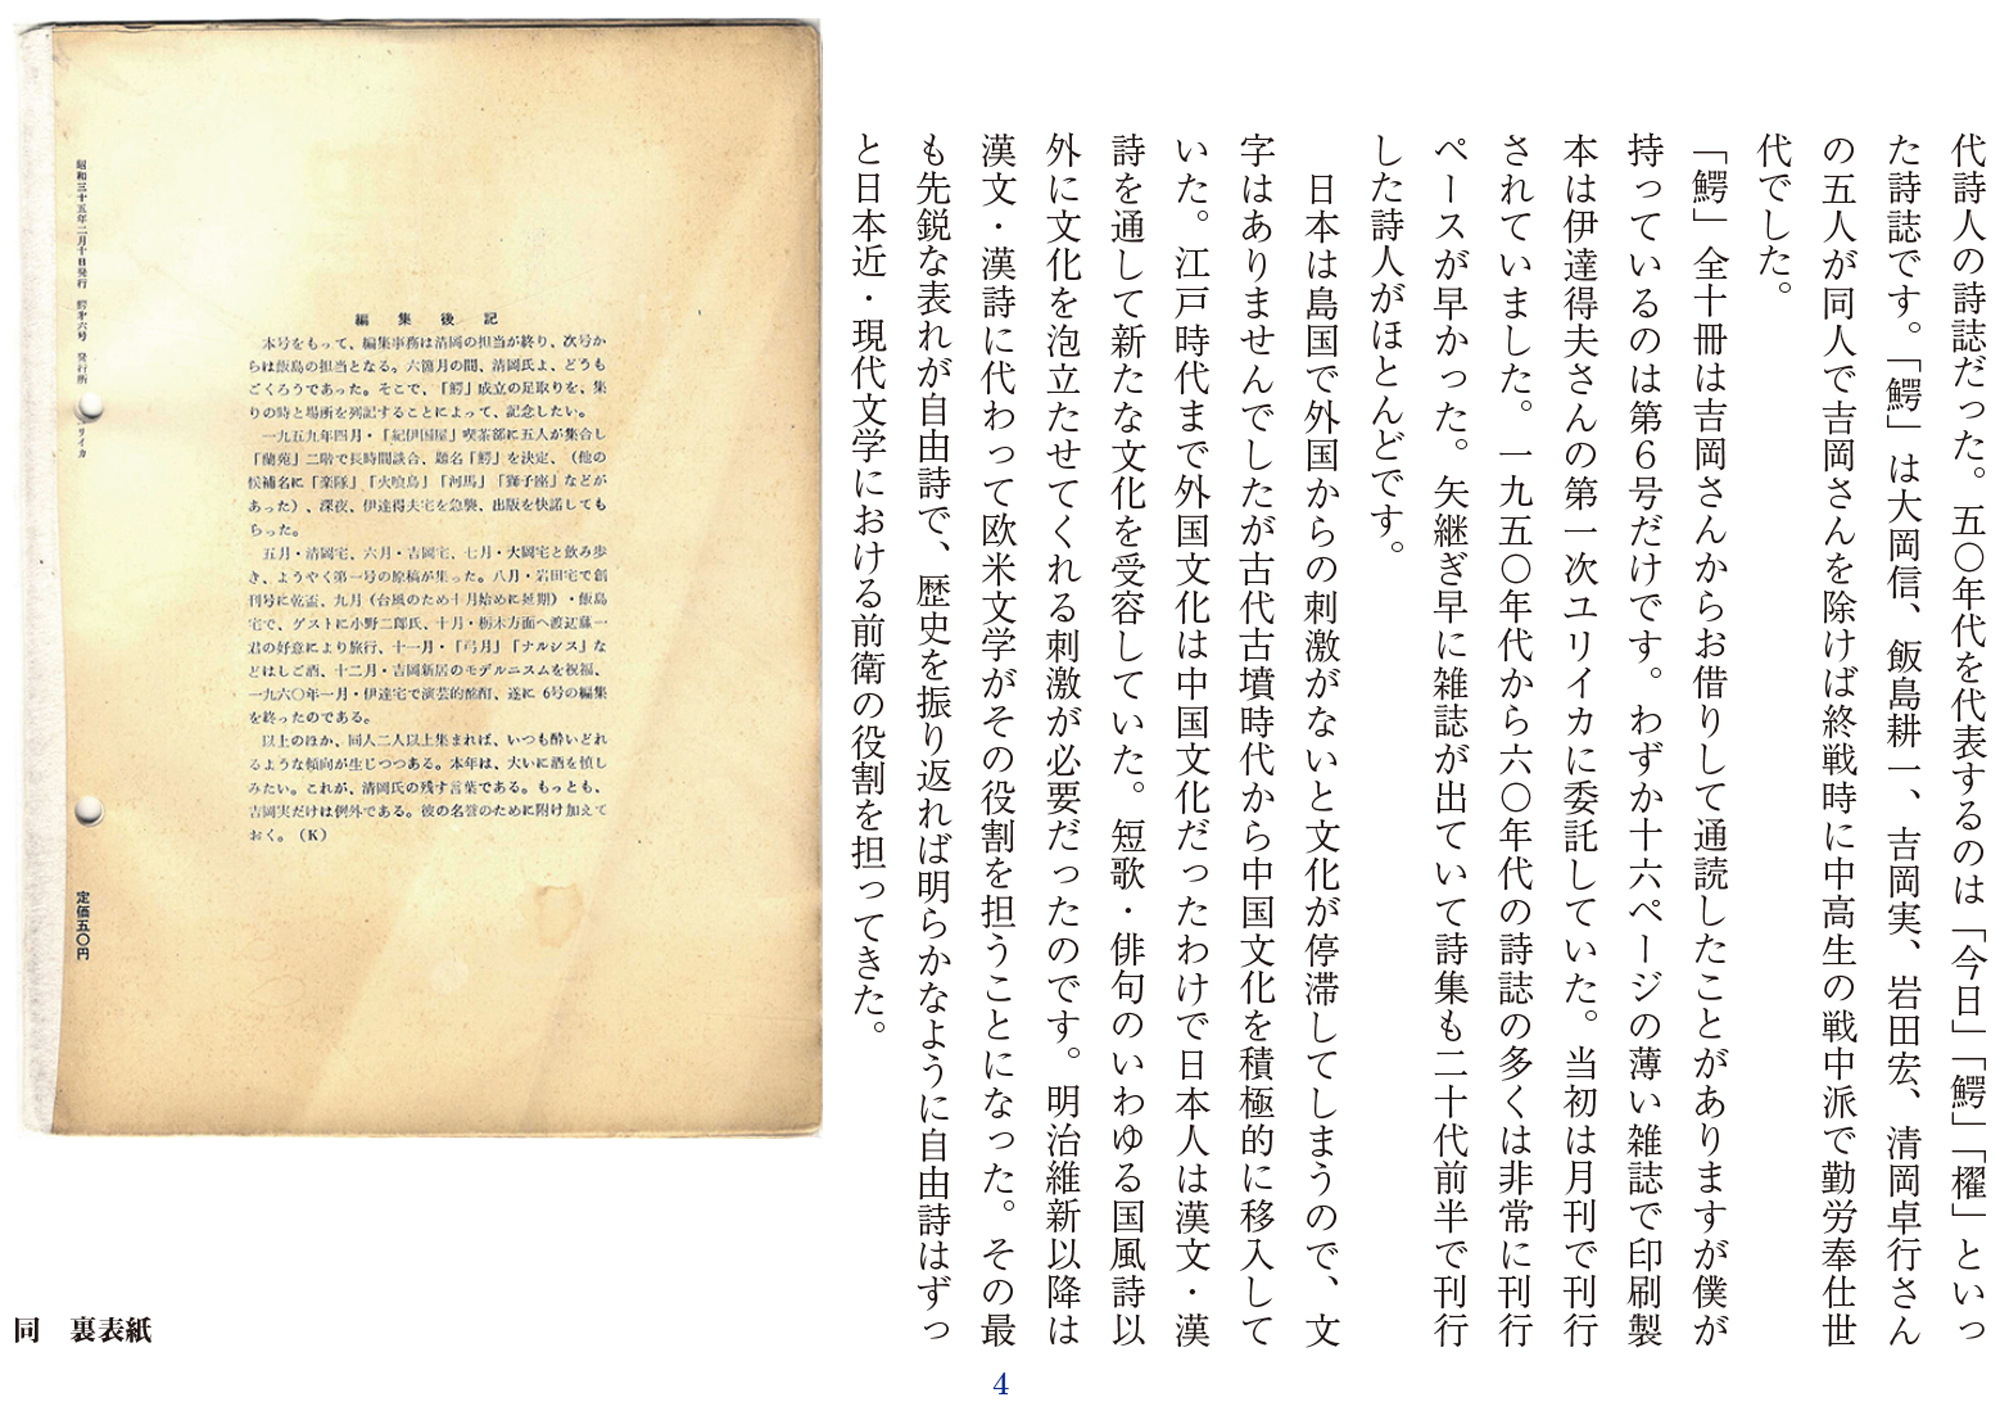 代詩人の詩誌だった。五〇年代を代表するのは「今日」「鰐」「櫂」といっ
た詩誌です。「鰐」は大岡信、飯島耕一、吉岡実、岩田宏、清岡卓行さん
の五人が同人で吉岡さんを除けば終戦時に中高生の戦中派で勤労奉仕世
代でした。
「鰐」全十冊は吉岡さんからお借りして通読したことがありますが僕が
持っているのは第6号だけです。わずか十六ページの薄い雑誌で印刷製
本は伊達得夫さんの第一次ユリイカに委託していた。当初は月刊で刊行
されていました。一九五〇年代から六〇年代の詩誌の多くは非常に刊行
ペースが早かった。矢継ぎ早に雑誌が出ていて詩集も二十代前半で刊行
した詩人がほとんどです。
日本は島国で外国からの刺激がないと文化が停滞してしまうので、文
字はありませんでしたが古代古墳時代から中国文化を積極的に移入して
いた。江戸時代まで外国文化は中国文化だったわけで日本人は漢文・漢
詩を通して新たな文化を受容していた。短歌・俳句のいわゆる国風詩以
外に文化を泡立たせてくれる刺激が必要だったのです。明治維新以降は
漢文・漢詩に代わって欧米文学がその役割を担うことになった。その最
も先鋭な表れが自由詩で、歴史を振り返れば明らかなように自由詩はずっ
と日本近・現代文学における前衛の役割を担ってきた。
編集後記
本号をもって、編集事務は清岡の担当が終り、次号か
らは飯島の担当となる。六箇月の間、清岡氏よ、どうも
ごくろうであった。そこで、「鰐」成立の足取りを、集
りの時と場所を列記することによって、記念したい。
一九五九年四月・「紀伊国屋」喫茶部に五人が集合し
「蘭苑」二階で長時間談合、題名「鰐」を決定、(他の
候補名に「楽隊」「火喰鳥」「河馬」「獅子座」などが
あった)、深夜、伊達得夫宅を急襲、出版を快諾しても
らった。
五月・清岡宅、六月・吉岡宅、七月・大岡宅と飲み歩
き、ようやく第一号の原稿が集った。八月・岩田宅で創
刊号に乾盃、九月(台風のため十月始めに延期)・飯島
宅で、ゲストに小野二郎氏、十月・栃木方面へ渡辺藤一
君の好意により旅行、十一月・「弓月」「ナルシス」な
どはしご酒、十二月・吉岡新居のモデルニスムを祝福、
一九六〇年一月・伊達宅で演芸的酩酊、遂に6号の編集
を終ったのである。
以上のほか、同人二人以上集まれば、いつも酔いどれ
るような傾向が生じつつある。本年は、大いに酒を慎し
みたい。これが、清岡氏の残す言葉である。もっとも、
吉岡実だけは例外である。彼の名誉のために附け加えて
おく。(K)
昭和三十五年二月十日発行 鰐第六号 発行所 リイカ
定価五〇円
同 裏表紙
4